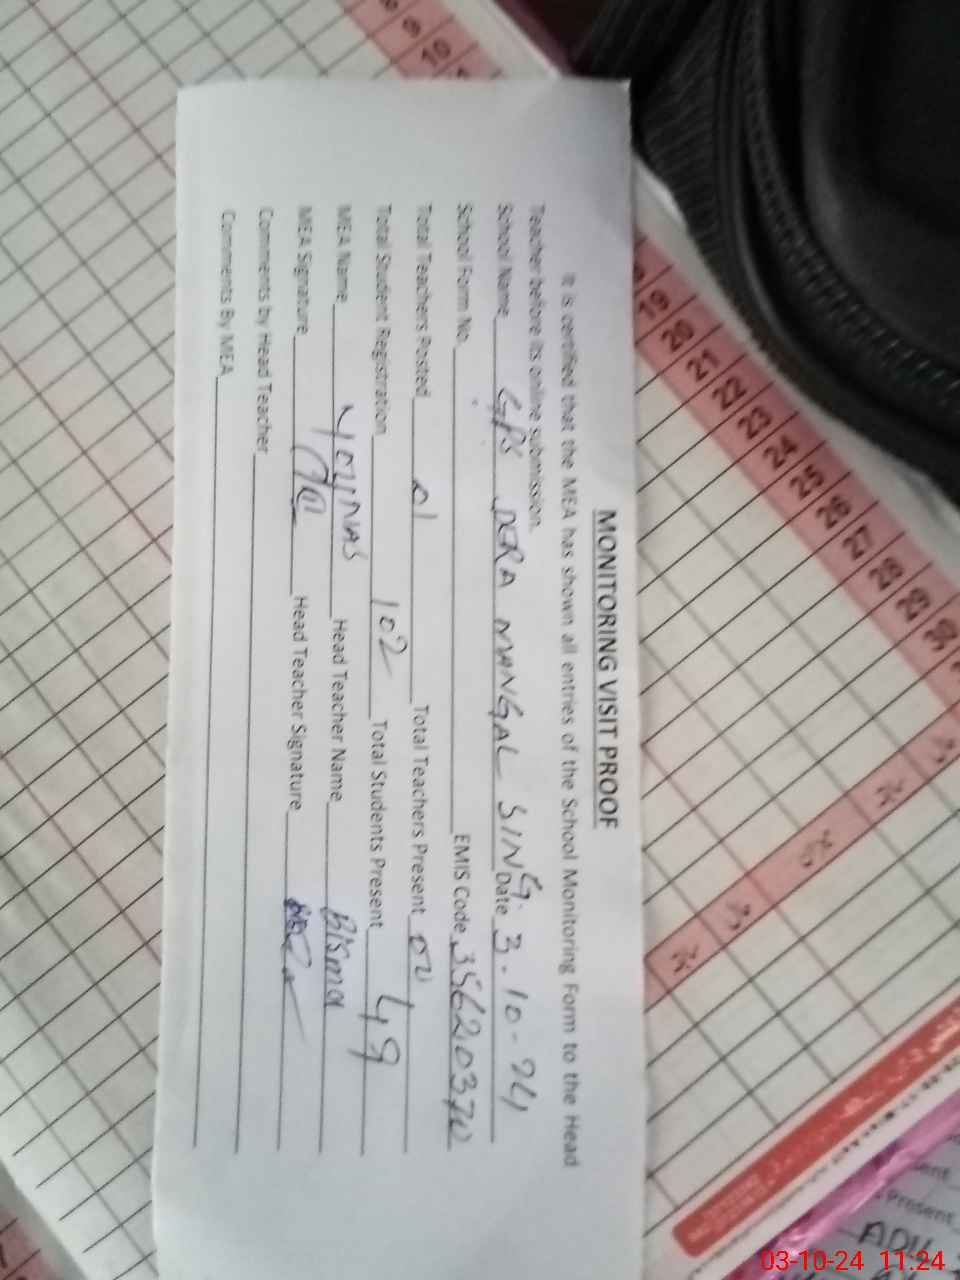 MONITORING VISIT PROOF
It is certified that the MEA has shown all entries of the School Monitoring Form to the Head
Teacher before its online submission.
School Name GPS DERA MANGAL SING. Date 3-10-24
School Form No. EMIS Code
Total Teachers Posted 01 Total Teachers Present
Total Student Registration 102 Total Students Present 49
MEA Name Head Teacher Name Bisma
MEA Signature Head Teacher Signature
Comments by Head Teacher
Comments By MEA
8 9 10
19 20 21 22 23 24 25 26 27 28 29 30
Present
03-10-24 11:24